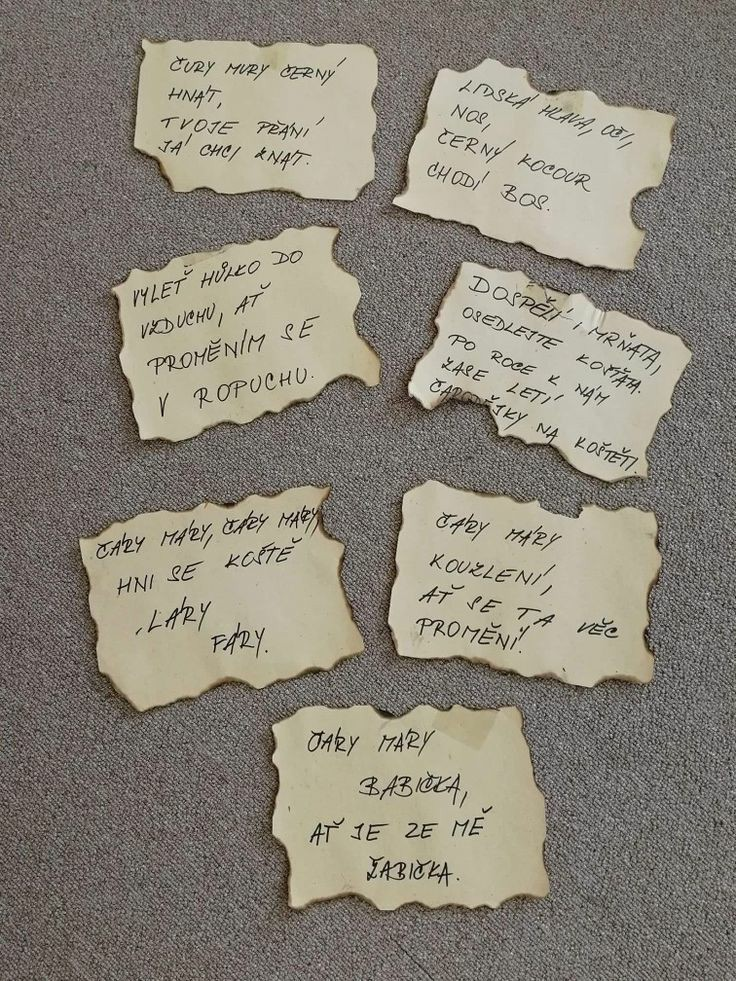 ČURY MURY ČERNÝ
HNÁT,
TVOJE PŘÁNÍ
JÁ CHCI ZNÁT.
LIDSKÁ HLAVA, OČI,
NOS,
ČERNÝ KOCOUR
CHODÍ BOS.
VYLEŤ HŮLKO DO
VZDUCHU, AŤ
PROMĚNÍM SE
V ROPUCHU.
DOSPĚLÍ, MRŇATA,
OSEDLEJTE KOŠŤATA.
PO ROCE K NÁM
ZASE LETÍ
ČARODĚJKY NA KOŠTĚTI.
ČÁRY MÁRY, ČÁRY MÁRY,
HNI SE KOŠTĚ
, LÁRY
FÁRY.
ČÁRY MÁRY
KOUZLENÍ,
AŤ SE TA VĚC
PROMĚNÍ.
ČÁRY MÁRY
BABIČKA,
AŤ JE ZE MĚ
ŽABIČKA.